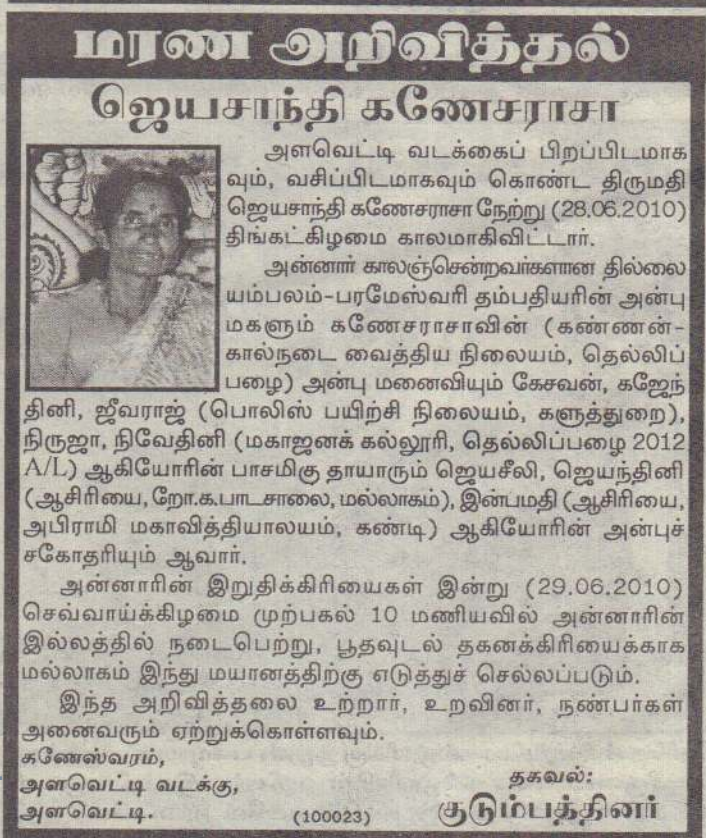 மரண அறிவித்தல்
ஜெயசாந்தி கணேசராசா
அளவெட்டி வடக்கைப் பிறப்பிடமாக
வும், வசிப்பிடமாகவும் கொண்ட திருமதி
ஜெயசாந்தி கணேசராசா நேற்று (28.06.2010)
திங்கட்கிழமை காலமாகிவிட்டார்.
அன்னார் காலஞ்சென்றவர்களான தில்லை
யம்பலம்-பரமேஸ்வரி தம்பதியரின் அன்பு
மகளும் கணேசராசாவின் (கண்ணன்-
கால்நடை வைத்திய நிலையம், தெல்லிப்
பழை) அன்பு மனைவியும் கேசவன், கஜேந்
தினி, ஜீவராஜ் (பொலிஸ் பயிற்சி நிலையம், களுத்துறை),
நிருஜா, நிவேதினி (மகாஜனக் கல்லூரி, தெல்லிப்பழை 2012
A/L) ஆகியோரின் பாசமிகு தாயாரும் ஜெயசீலி, ஜெயந்தினி
(ஆசிரியை, றோ.க.பாடசாலை, மல்லாகம்), இன்பமதி (ஆசிரியை,
அபிராமி மகாவித்தியாலயம், கண்டி) ஆகியோரின் அன்புச்
சகோதரியும் ஆவார்.
அன்னாரின் இறுதிக்கிரியைகள் இன்று (29.06.2010)
செவ்வாய்க்கிழமை முற்பகல் 10 மணியவில் அன்னாரின்
இல்லத்தில் நடைபெற்று, பூதவுடல் தகனக்கிரியைக்காக
மல்லாகம் இந்து மயானத்திற்கு எடுத்துச் செல்லப்படும்.
இந்த அறிவித்தலை உற்றார், உறவினர், நண்பர்கள்
அனைவரும் ஏற்றுக்கொள்ளவும்.
கணேஸ்வரம்,
அளவெட்டி வடக்கு,
அளவெட்டி.
(100023)
தகவல்:
குடும்பத்தினர்